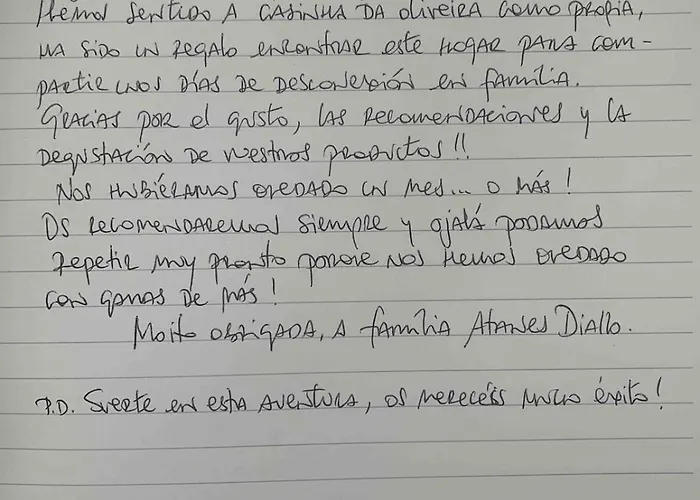 Hemos sentido A CASINHA DA Oliveira como propia,
HA sido un regalo encontrar este HOGAR PARA com-
partir unos DÍAS DE DESCONEXIÓN en família.
GRACIAS POR el gusto, LAS RECOMENDACIONES y LA
DEGUSTACIÓN DE vuestros PRODUCTOS!!
NOS HUBIÉRAMOS QUEDADO UN MES... O MÁS!
OS RECOMENDAREMOS SIEMPRE y OJALÁ PODAMOS
REPETIR MUY PRONTO PORQUE NOS HEMOS QUEDADO
CON GANAS DE MÁS!
Moito OBRIGADA, A família Atanes Diallo.
P.D. Suerte en esta AVENTURA, OS MERECÉIS MUCHO éxito!